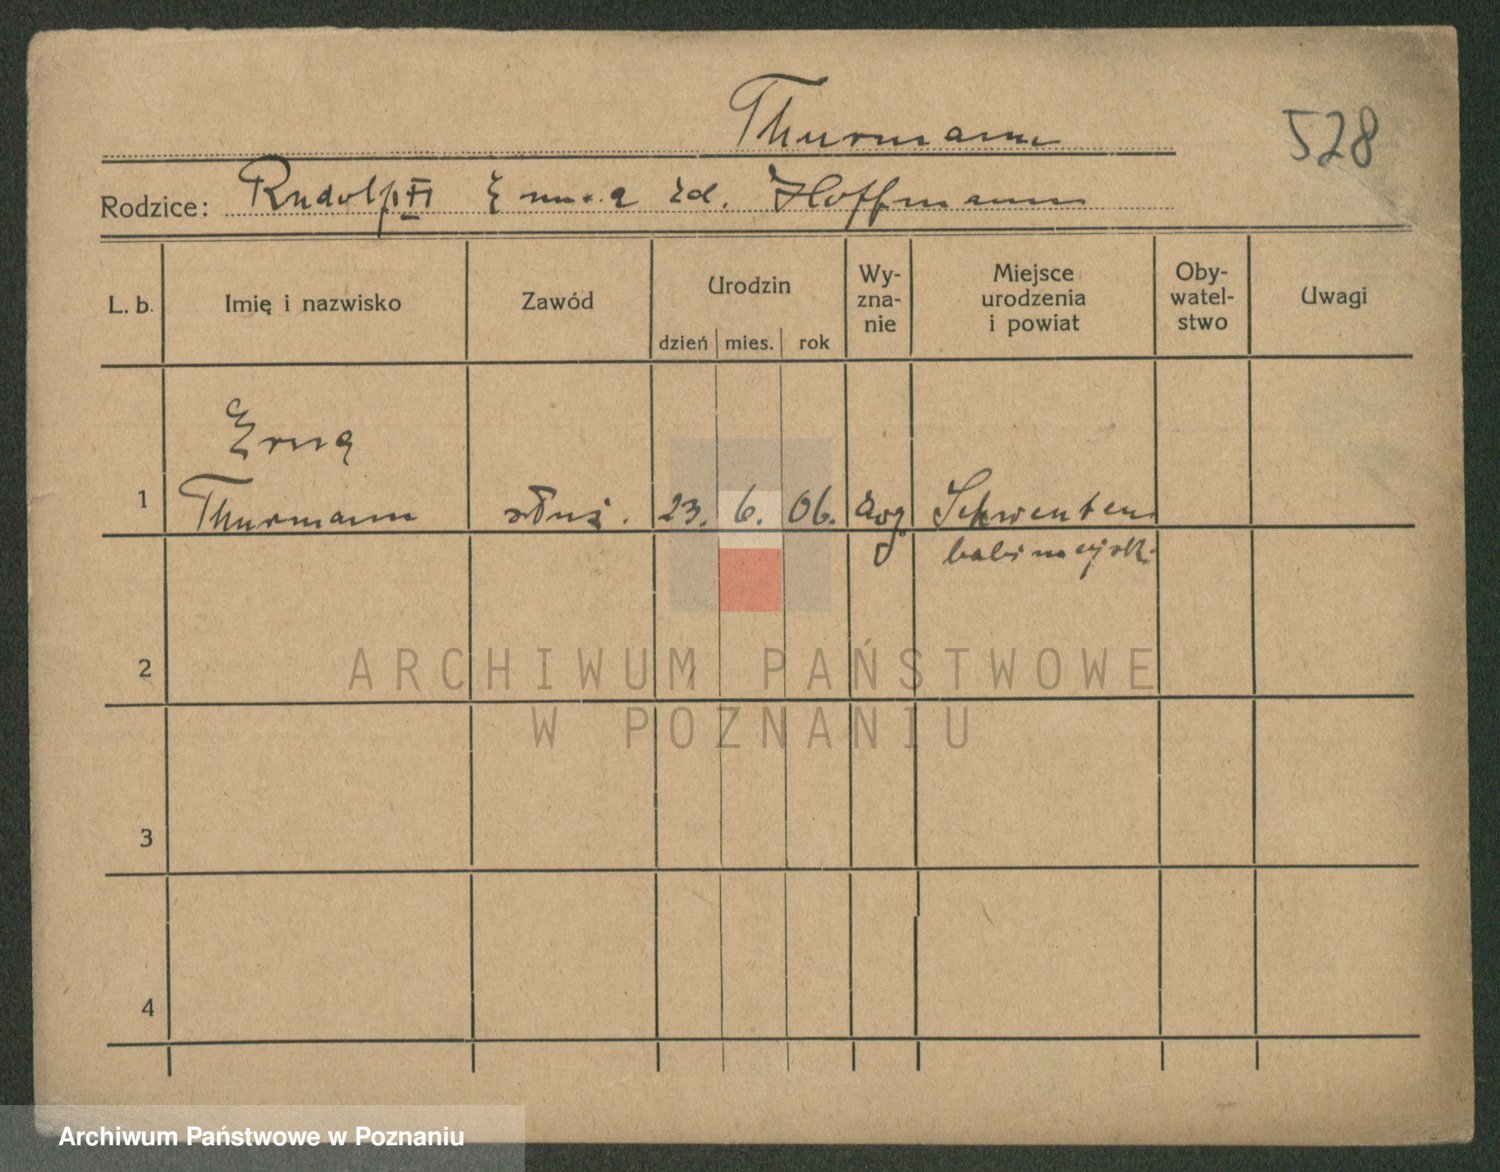 Thurmann
528
Rodzice: Rudolf Emma zd. Hoffmann
L. b. Imię i nazwisko Zawód Urodzin Wy-zna-nie Miejsce urodzenia i powiat Oby-watel-stwo Uwagi
dzień mies. rok
Erna
1 Thurmann służ. 23. 6. 06. ewg Schwenten
babimojsk.
2
ARCHIWUM PAŃSTWOWE
W POZNANIU
3
4
Archiwum Państwowe w Poznaniu